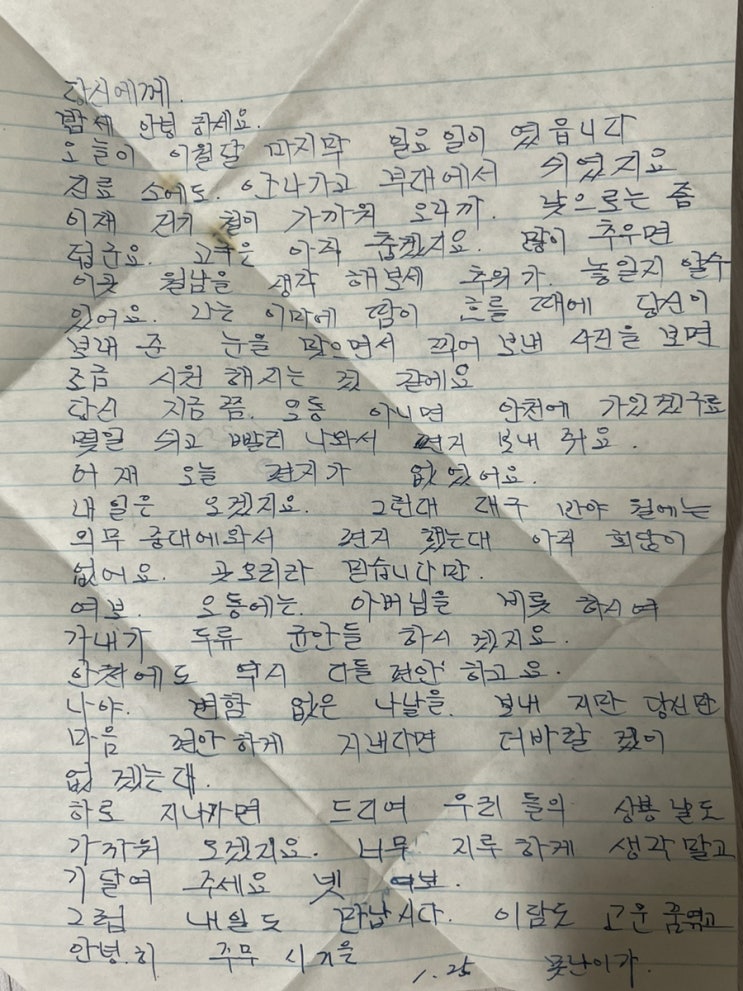 당신에께.
밤세 안녕 하세요.
오늘이 이월달 마지막 일요일이 였읍니다
진료 소에도. 안나가고 부대에서 쉬였지요
이재 건기 철이 가까워 오니까. 낮으로는 좀
덥군요. 고국은 아직 춥겠지요. 많이 추우면
이곳 월남을 생각 해보세 추위가. 놓일지 알수
있어요. 나는 이마에 땀이 흐를 때에 당신이
보내 준 눈을 맞으면서 찍어 보낸 사진을 보면
조금 시원 해지는 것 같에요
당신 지금 쯤. 오동 아니면 안천에 가있겠구료
몇일 쉬고 빨리 나와서 편지 보내 줘요.
어재 오늘 편지가 없었어요.
내일은 오겠지요. 그런대 대구 반야 월에는
의무 중대에와서 편지 했는대 아직 회답이
없어요. 곳오리라 믿습니다만.
여보. 오동에는. 아버님을 비롯 하시여
가내가 두류 균안들 하시 겠지요.
안천에도 역시 다들 편안 하고요.
나야. 변함 없은 나날을. 보내 지만 당신만
마음 편안하게 지낸다면 더바랄 것이
없 겠는대.
하로 지나가면 드리여 우리 들의 상봉 날도
가까워 오겠지요. 너무 지루 하게 생각 말고
기달여 주세요 넷 여보.
그럼 내일도 만납시다. 이밤도 고운 꿈엮고
안녕.히 주무 시기을
1. 25 못난이가.